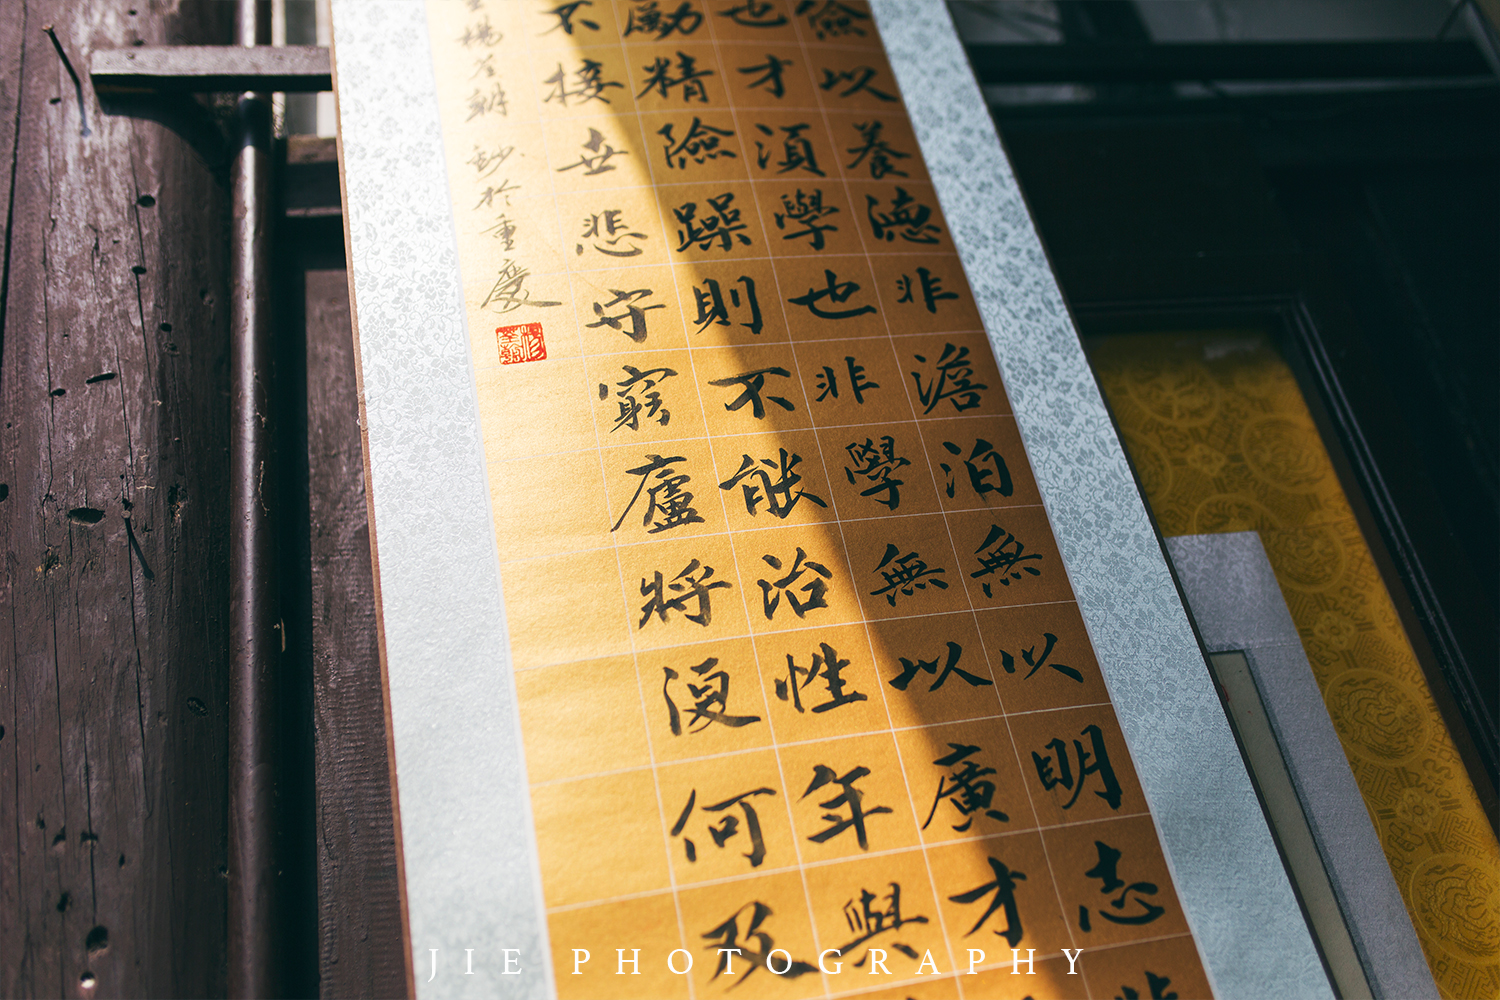 儉以養德非澹泊無以明志非
也才須學也非學無以廣才
勵精險躁則不能治性年與
不接世悲守窮廬將復何及
鈔於重慶
JIE PHOTOGRAPHY